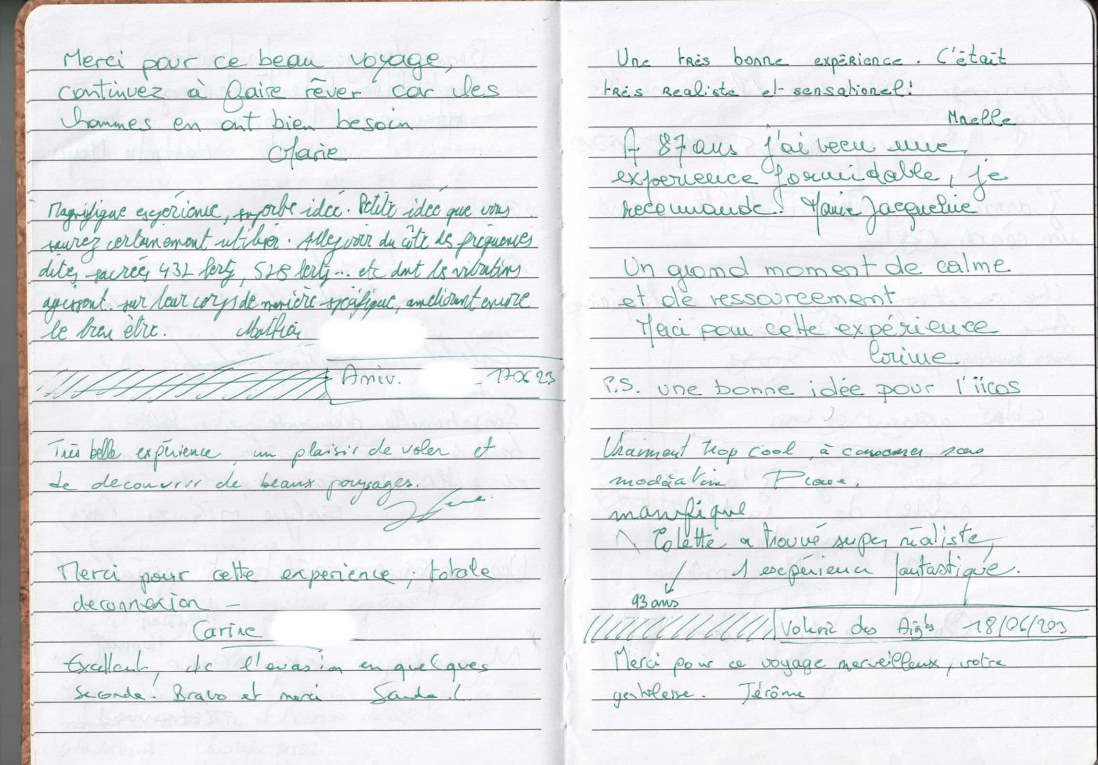 Merci pour ce beau voyage,
continuez à faire rêver car les
hommes en ont bien besoin
Marie
Magnifique expérience, superbe idée. Petite idée que vous
saurez certainement utiliser. Allez voir du côté des fréquences
dites sacrées 432 hertz, 528 hertz... etc dont les vibrations
agissent sur leur corps de manière spécifique, améliorant encore
le bien être.
Anniv. 17 06 23
Très belle expérience, un plaisir de voler et
de decouvrir de beaux paysages.
Merci pour cette experience, totale
deconnexion -
Carine
Excellent, de l'evasion en quelques
seconde. Bravo et merci
Une très bonne expérience. C'était
très realiste et sensationel!
Maelle
A 87 ans j'ai vecu une
experience formidable, je
recommande! Marie Jacqueline
Un grand moment de calme
et de ressourcement
Merci pour cette expérience
Corinne
P.S. une bonne idée pour l'
Vraiment trop cool, à consommer sans
modération
manifique
Colette a trouvé super réaliste,
1 expérience fantastique.
93 ans
Volerie des Aigles 18/06/203
Merci pour ce voyage merveilleux, votre
gentillesse. Jérôme